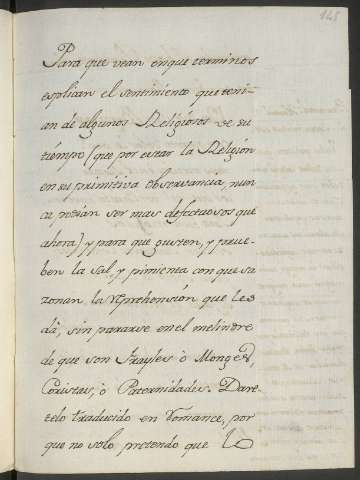 145
Para que vean en que terminos
esplican el sentimiento que teni-
an de algunos Religiosos de su
tiempo (que por estar la Religion
en su primitiva observancia, nun
ca podian ser mas defectuosos que
ahora) y para que gusten, y prue-
ben la sal, y pimienta con que sa
zonan la reprehension que les
dà, sin pararse en el melindre
de que son frayles ò Monges,
Coristas, ò Paternidades. Dare
telo traducido en romance, por
que no solo pretendo que